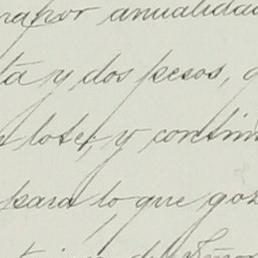 por anualidad
ta y dos pesos,
lote, y contin
para lo que go